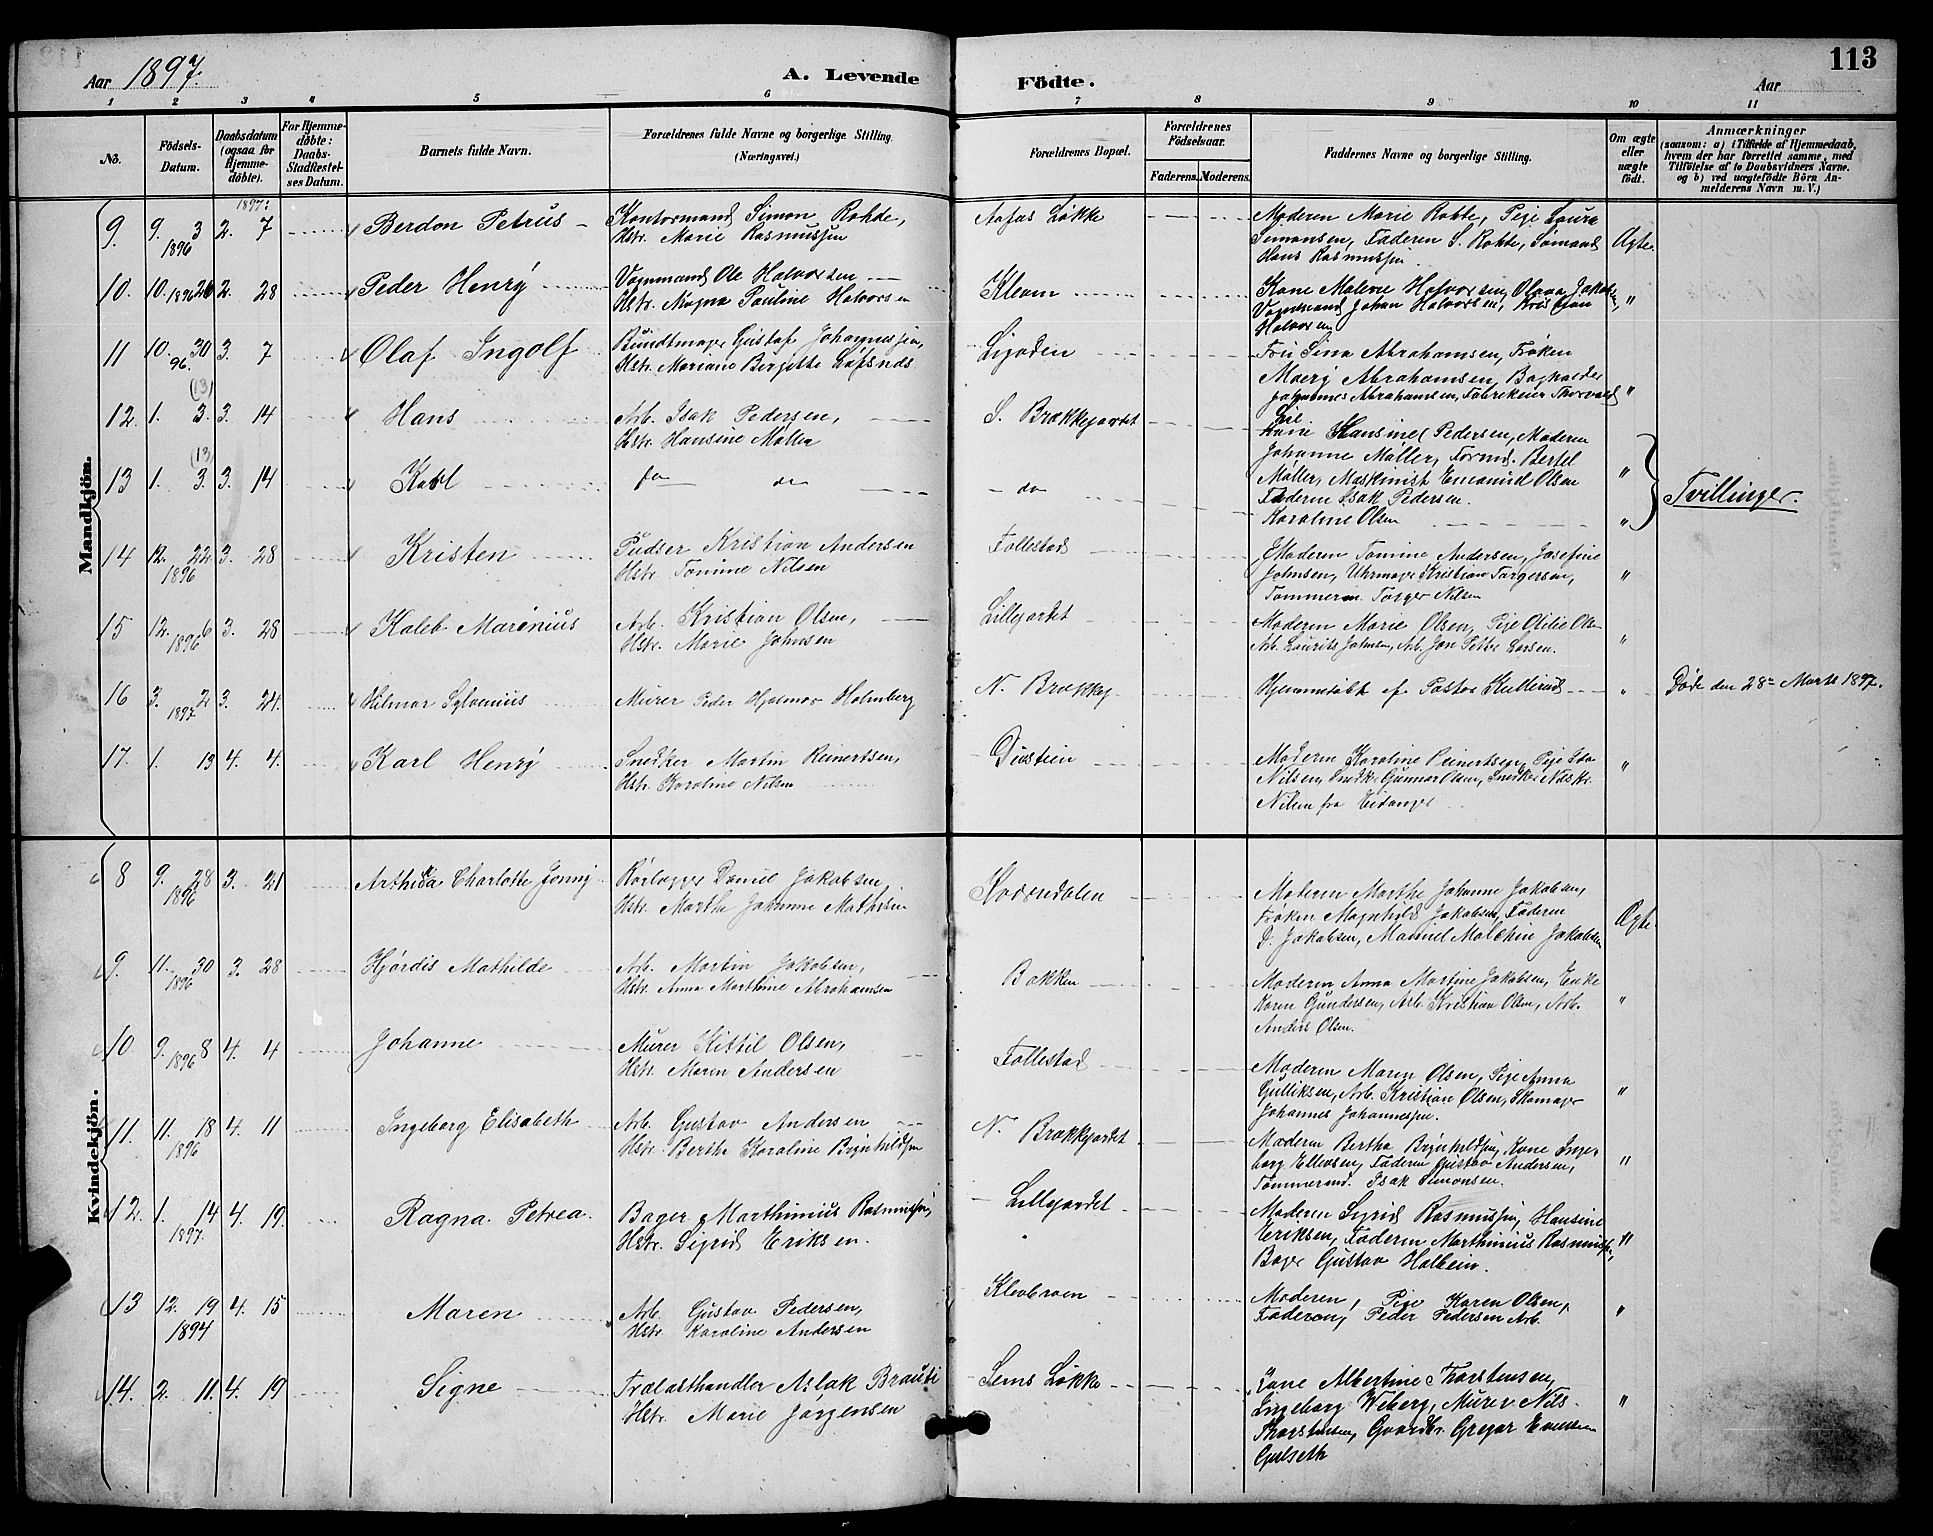 Aar 1897.
A. Levende
Födte.
Aar
113
1 2 3 4 5 6 7 8 9 10 11
No.
Födsels-Datum.
Daabsdatum (ogsaa for Hjemme-döbte).
For Hjemme-döbte: Daabs-Stadfæstel-ses Datum.
Barnets fulde Navn.
Forældrenes fulde Navne og borgerlige Stilling. (Næringsvei.)
Forældrenes Bopæl.
Forældrenes Födselsaar.
Faderens. Moderens.
Faddernes Navne og borgerlige Stilling.
Om ægte eller uægte födt.
Anmærkninger
(saasom: a) i Tilfælde af Hjemmedaab, hvem der har forrettet samme, med Tilföielse af to Daabsvidners Navne. og b) ved uægtefödte Börn An-melderens Navn m. V.)
Mandkjön.
1897:
9. 9. 3 1896 2. 7 Berdon Petrus Kontormand Simon Rohde,
Hstr. Marie Rasmussen
Løkke
Moderen Marie Rohde, Pige Laura
Simonsen, Faderen S. Rohde, Sømand
Hans Rasmussen
Ægte.
10. 10. 1896 26 2. 28 Peder Henry Vognmand Ole Halvorsen
Hstr. Magna Pauline Halvorsen
Kleven
Kone Malene Halvorsen, Olava Jakobs.,
Vognmand Johan Halvorsen, Kristian
Halvorsen
"
11 10. 30 96. 3. 7 Olaf Ingolf Bundtmager Gustaf Johannessen,
Hstr. Mariane Birgitte
Fru Sina Abrahamsen, Frøken
Mary Abrahamsen, Bogholder
Johannes Abrahamsen, Fabrikeier Thorvald
"
12. 1. 3. (13) 3. 14 Hans Arb. Isak Pedersen,
Hstr. Hansine Møller
S. Brækkejordet
Kone Hansine Pedersen, Moderen
Johanne Møller, Formd. Bertel
13 1. 3. (13) 3. 14 Karl do do
do
Møller, Maskinist Emanuel Olsen
Faderen Isak Pedersen.
Karoline Olsen
"
"
Tvillinger.
14 12. 22 1896 3. 28 Kristen Pudser Kristian Andersen
Hstr. Tomine Nilsen
Follestad
Moderen Tomine Andersen, Josefine
Johnsen, Uhrmager Kristian Torgersen,
Tømmerm. Torger Nilsen
"
15 12. 6 1896 3. 28 Kaleb Marenius Arb. Kristian Olsen,
Hstr. Marie Johnsen
Lillejordet
Moderen Marie Olsen, Pige Otilie Olsen
Arb. Laurits Johnsen, Arb. Jon Petter Larsen.
"
16 3. 2 1897 3. 24. Hilmar Sylvenius Murer Peder Hjalmar Holmberg
N. Brækkej
Hjemmedøbt af Pastor Kullerud
"
Døde den 28de Marts 1897.
17. 1. 13 4. 4. Karl Henry Snedker Martin Reinertsen,
Hstr. Karoline Nilsen
Moderen Karoline Reinertsen, Pige Ida
Nilsen, Snedk. Gunnar Olsen, Snedker Nils Kr.
Nilsen fra Eidanger
"
Kvindekjön.
8 9. 28 1896 3. 21 Arthida Charlotte Jenny Rørlægger Daniel Jakobsen
Hstr. Marthe Johanne Mathisen
Hovendalen
Moderen Marthe Johanne Jakobsen,
Frøken Magnhild Jakobsen, Faderen
D. Jakobsen, Jakobsen
Ægte.
9. 11. 30 1896 3. 28 Hjørdis Mathilde Arb. Martin Jakobsen,
Hstr. Anna Marthine Abrahamsen
Bakken
Moderen Anna Martine Jakobsen, Enke
Karen Gundersen, Arb. Kristian Olsen, Arb.
Anders Olsen.
"
10 9. 8 1896 4. 4 Johanne Murer Kittil Olsen,
Hstr. Maren Andersen
Follestad
Moderen Maren Olsen, Pige Anna
Gulliksen, Arb. Kristian Olsen, Skomager
Johannes Johannessen.
"
11. 11. 18 1896 4. 11 Ingeborg Elisabeth Arb. Gustav Andersen
Hstr. Berthe Karoline Brynhildsen
N. Brækkejordet
Moderen Berthe Brynhildsen, Kone Inge
borg Ellevsen, Faderen Gustav Andersen,
Tømmermd. Isak Simonsen.
"
12. 1. 14 1897. 4. 19. Ragna Petrea Bager Marthinius Rasmussen,
Hstr. Sigrid Eriksen.
Lillejordet
Moderen Sigrid Rasmussen, Hansine
Eriksen, Faderen Marthinius Rasmussen,
Bager Gustav Holbein.
"
13 12. 19 1894 4. 15 Maren Arb. Gustav Pedersen,
Hstr. Karoline Andersen
Klovbroen
Moderen, Pige Karen Olsen,
Faderen, Peder Pedersen Arb.
"
14. 2. 11. 4. 19 Signe Trælasthandler Aslak Brauti
Hstr. Marie Jørgensen
Sems Løkke
Kone Albertine Thorstensen,
Ingeborg Wiberg, Murer Nils
Thorstensen, Gaardbr. Gregar Evensen
Gulseth
"